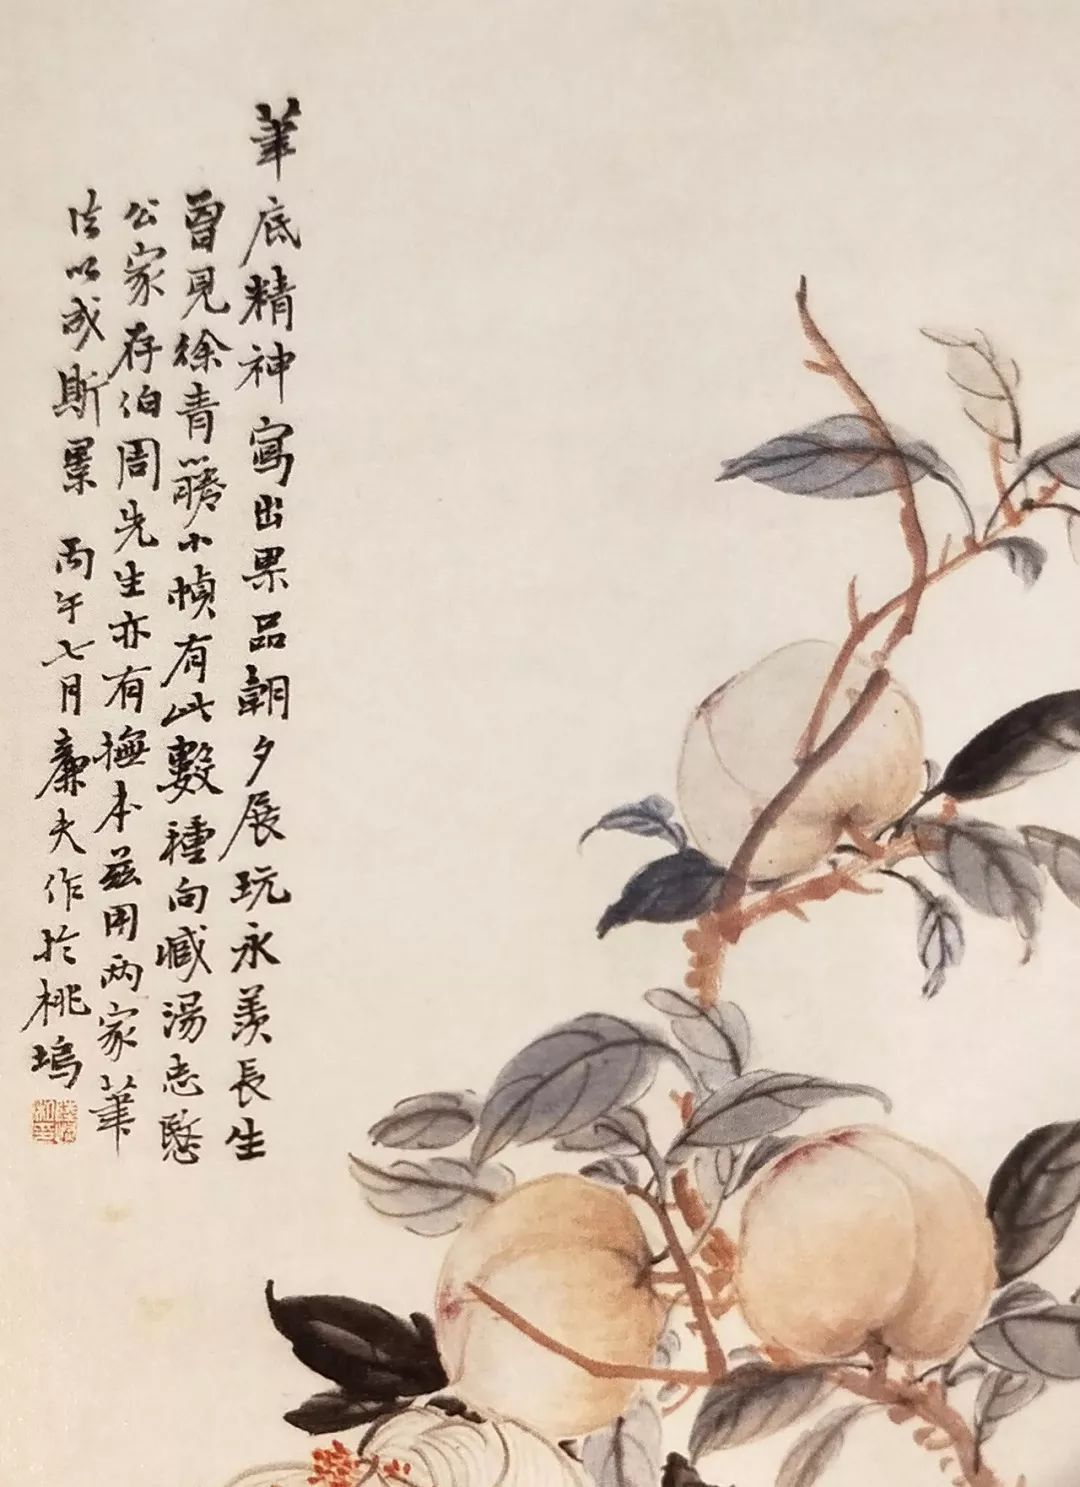 筆底精神寫出果品朝夕展玩永羨長生
曾見徐青藤小幀有此數種向臧湯志
公家存伯周先生亦有橅本茲用兩家筆
法以成斯景 丙午七月廉夫作於桃塢